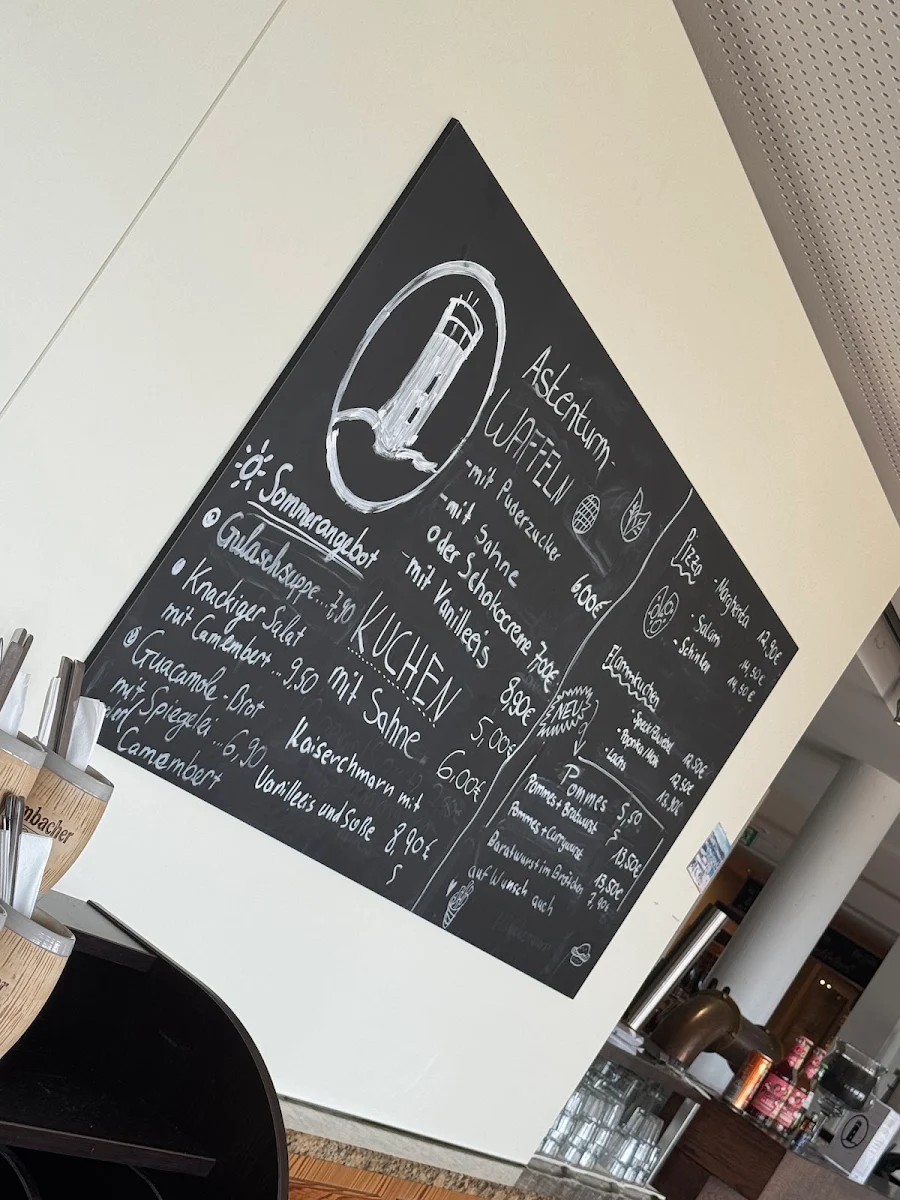 Astenturm-
WAFFELN
-mit Puderzucker 6.00€
-mit Sahne
oder Schokocreme 7,00€
-mit Vanilleeis 8,90€
KUCHEN 5,00€
mit Sahne 6.00€
Kaiserchmarn mit
Vanilleeis und Soße 8,90€
Sommerangebot
Gulaschsuppe...7,90
Knackiger Salat
mit Camembert...9,50
Guacamole-Brot
mit Spiegelei...6,90
Camembert
Pizza
-Margherita 12,90€
-Salami 14,50€
-Schinken 14,50€
Flammkuchen
12,50€
12,50€
-Lachs 13,90€
NEU
Pommes 5,50
Pommes+Bratwurst 13,50€
Pommes+Currywurst 13,50€
Baratwurst im Brötchen 7,90€
auf Wunsch auch
mbacher